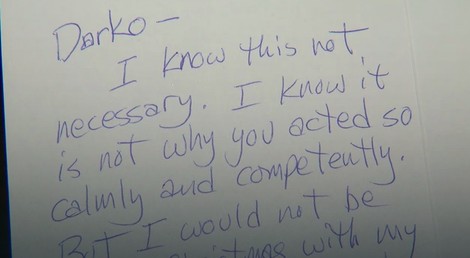 Darko -
I know this not
necessary. I know it
is not why you acted so
calmly and competently.
But I would not be
with my